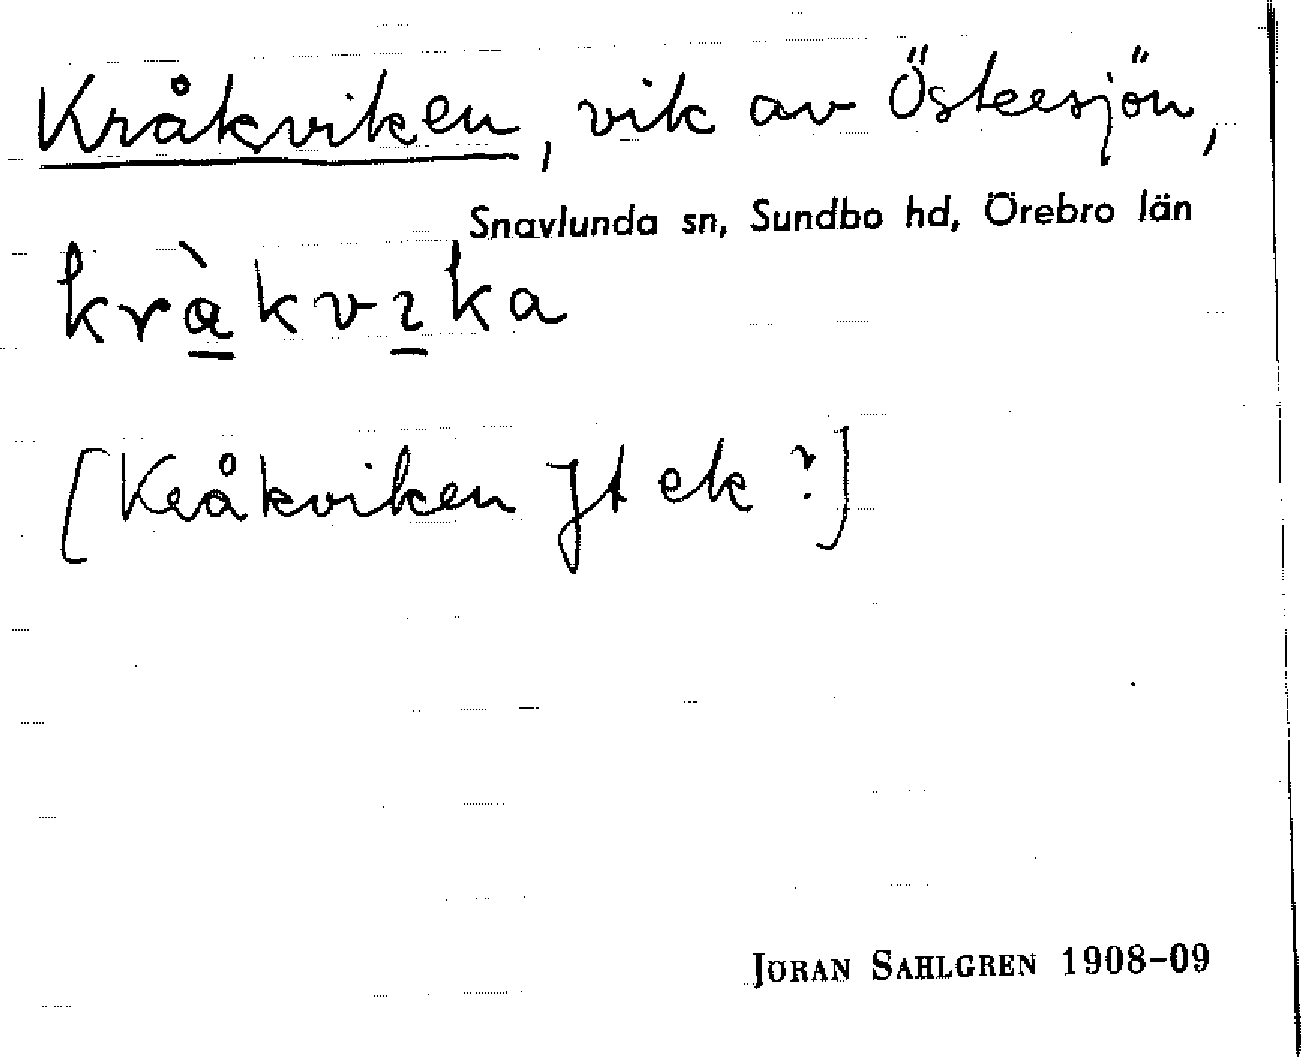 Kråkviken, vik av Östersjön,
Snavlunda sn, Sundbo hd, Örebro län
kràkvıka
[Kråkviken Jt ek ?]
JÖRAN SAHLGREN 1908-09